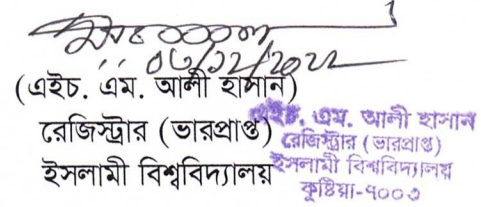 ০৬/১২/২০২২
(এইচ. এম. আলী হাসান)
রেজিস্ট্রার (ভারপ্রাপ্ত)
ইসলামী বিশ্ববিদ্যালয়
এইচ. এম. আলী হাসান
রেজিস্ট্রার (ভারপ্রাপ্ত)
ইসলামী বিশ্ববিদ্যালয়
কুষ্টিয়া-৭০০৩